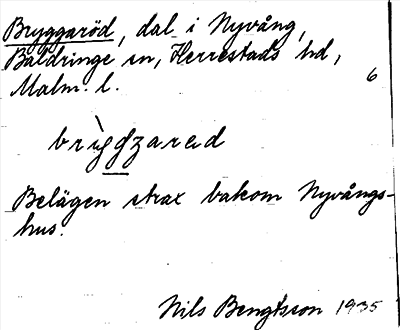 Bryggaröd, dal i Nyvång,
Baldringe sn, Herrestads hd,
Malm. l.
6
brìggzared
Belägen strax bakom Nyvångs-
hus.
Nils Bengtsson 1935